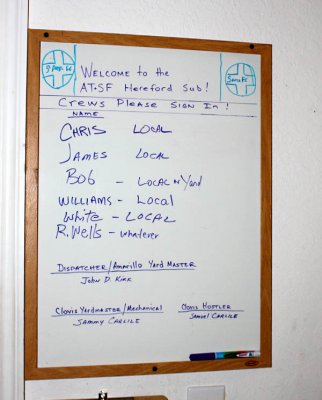 Welcome to the
AT&SF Hereford Sub!
Santa Fe
Crews Please Sign In!
NAME
CHRIS LOCAL
JAMES LOCAL
Bob - LOCAL N Yard
WILLIAMS - Local
White - LOCAL
R. Wells - whatever
DISPATCHER/Amarillo Yard MASTER
John D. Kirk
Clovis Yardmaster/Mechanical
SAMMY CARLILE
Clovis HOSTLER
SAMUEL CARLILE